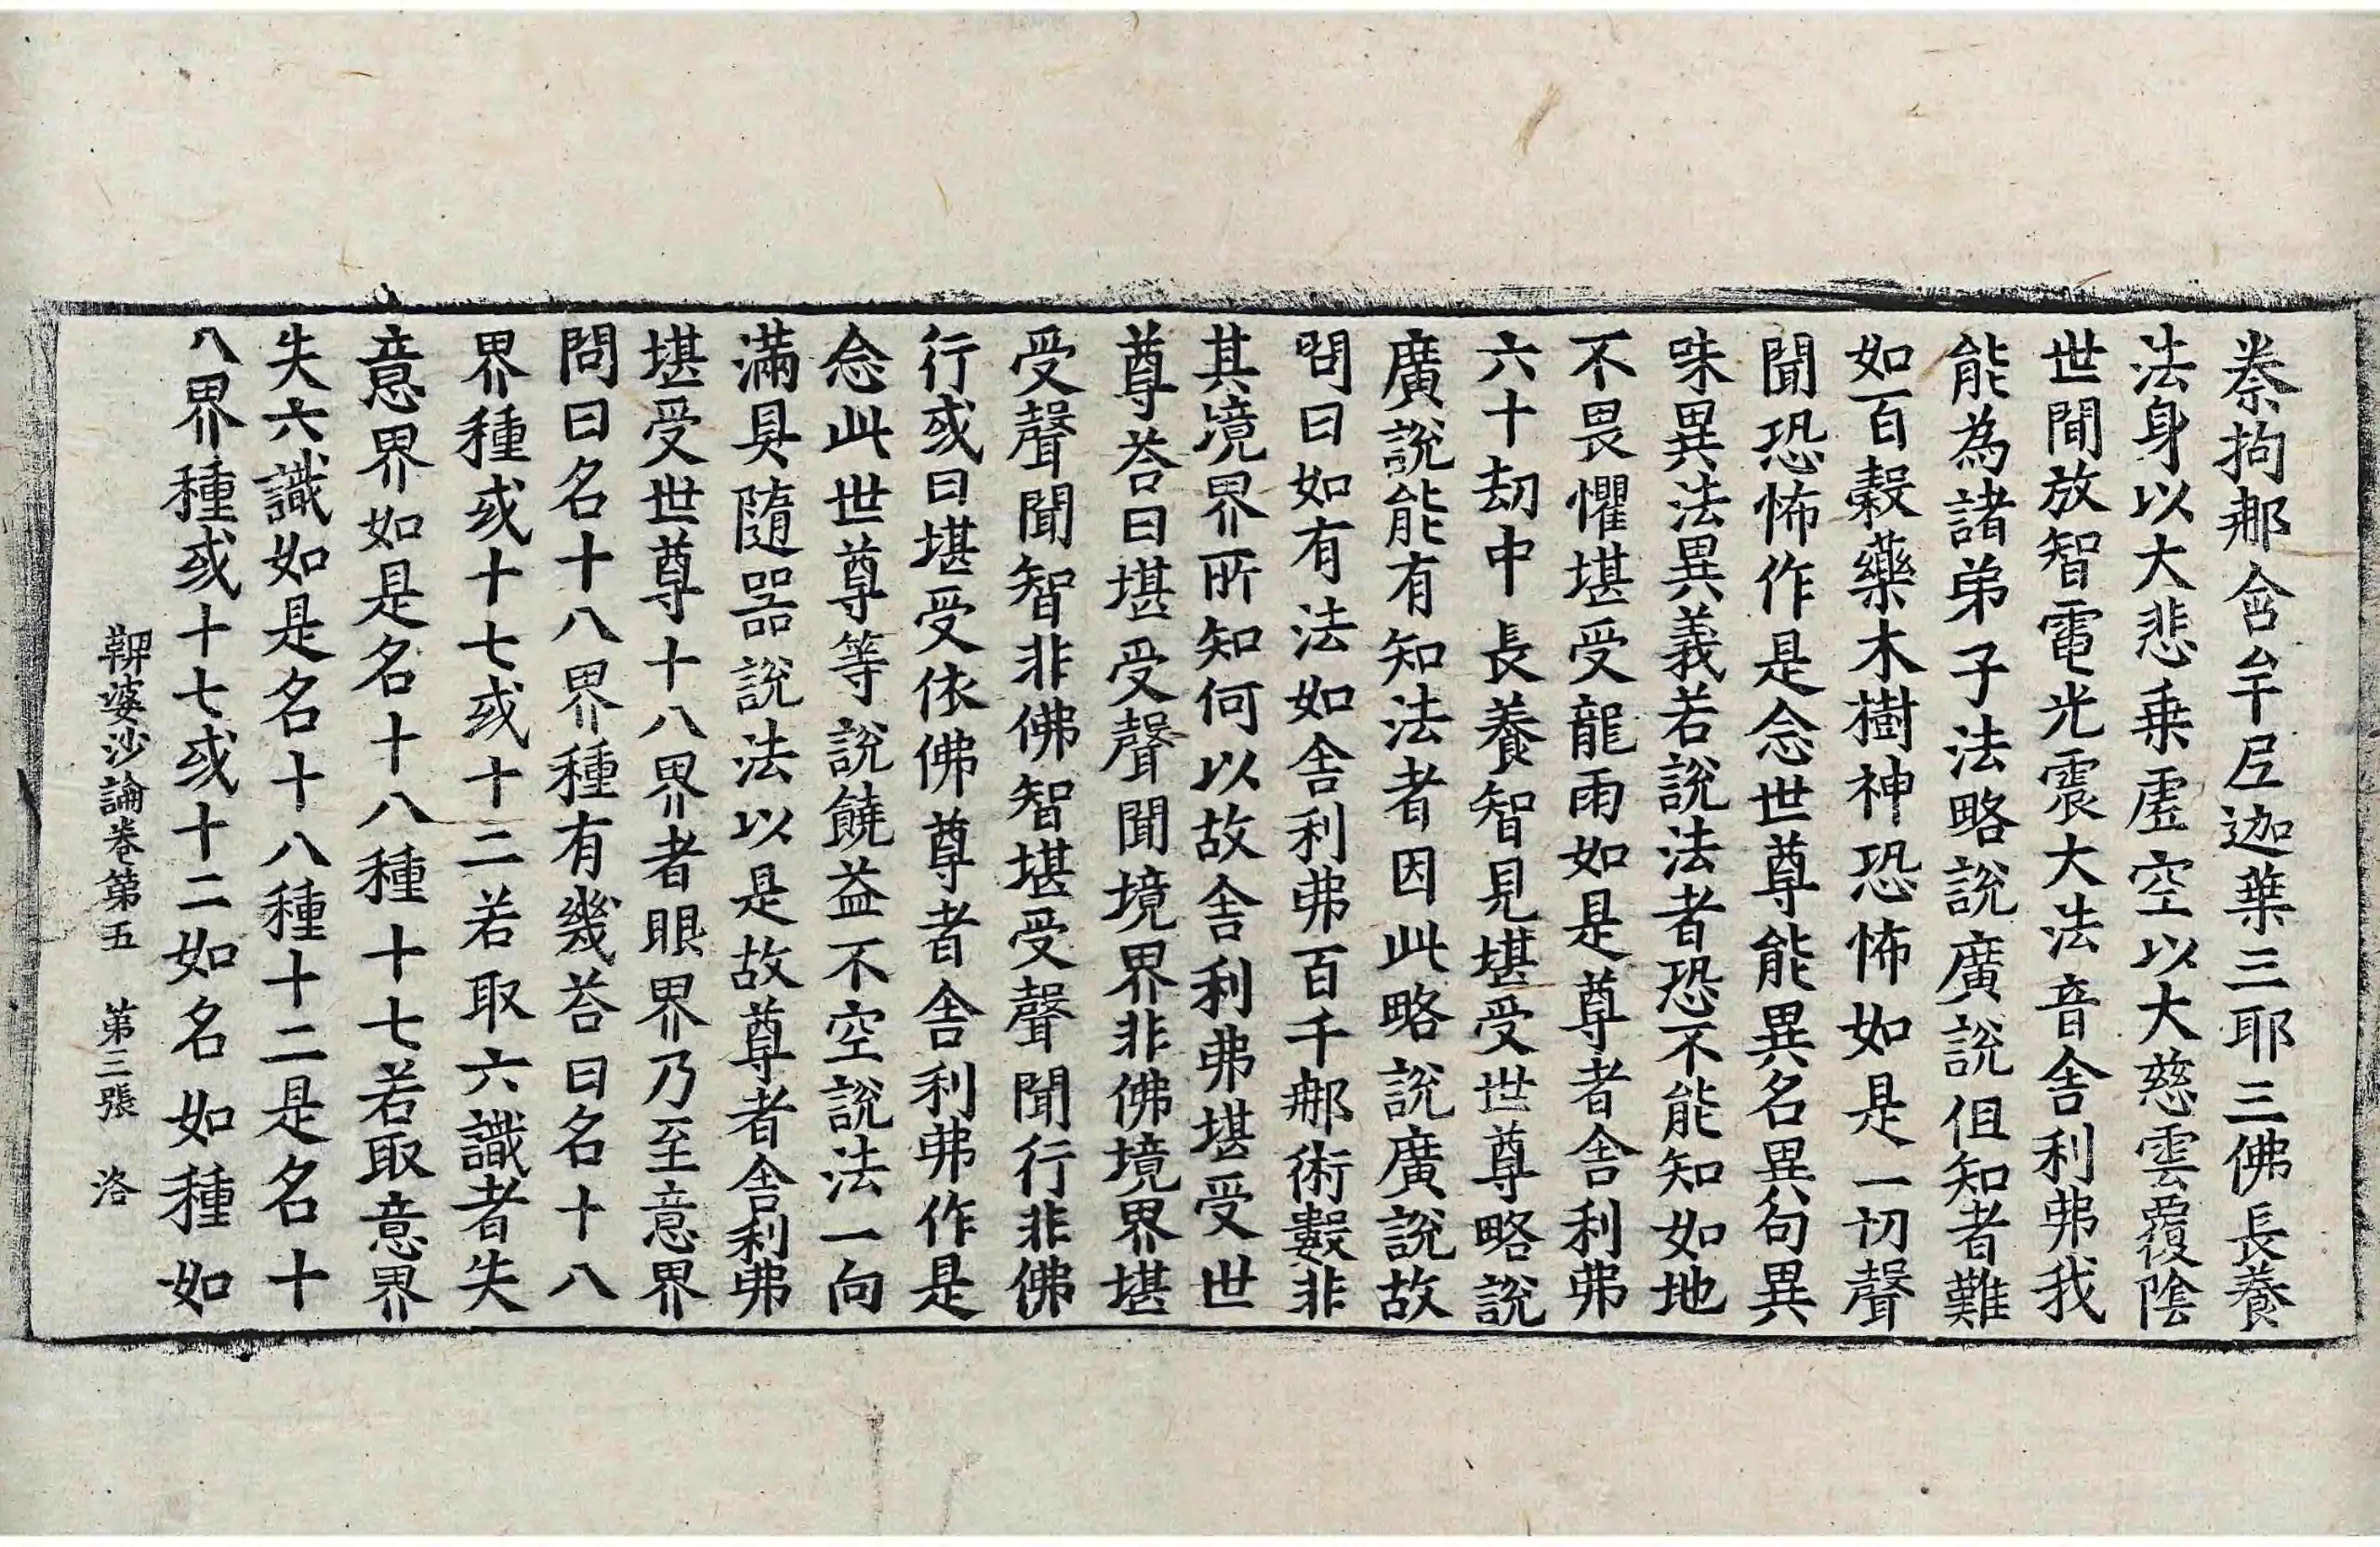 㭐拘那含牟尼迦葉三耶三佛長養
法身以大悲乗虛空以大慈雲覆陰
世間放智電光震大法音舎利弗我
能為諸弟子法略說廣說但知者難
如百穀藥木樹神恐怖如是一切聲
聞恐怖作是念世尊能異名異句異
味異法異義若說法者恐不能知如地
不畏懼堪受龍雨如是尊者舎利弗
六十劫中長養智見堪受世尊略說
廣說能有知法者因此略說廣說故
問曰如有法如舎利弗百千那術數非
其境界所知何以故舎利弗堪受世
尊荅曰堪受聲聞境界非佛境界堪
受聲聞智非佛智堪受聲聞行非佛
行或曰堪受依佛尊者舎利弗作是
念此世尊等說饒益不空說法一向
滿具隨器說法以是故尊者舎利弗
堪受世尊十八界者眼界乃至意界
問曰名十八界種有幾荅曰名十八
界種或十七或十二若取六識者失
意界如是名十八種十七若取意界
失六識如是名十八種十二是名十
八界種或十七或十二如名如種如
鞞婆沙論卷第五 第三張 洛